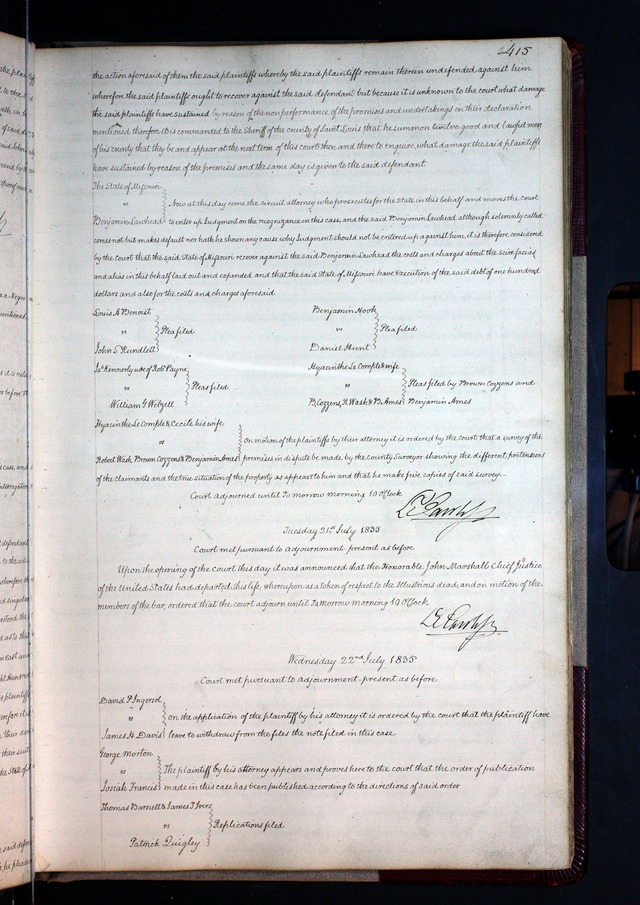 415
the action aforesaid of them the said plaintiffs whereby the said plaintiffs remain therein undefended against him
wherefore the said plaintiffs ought to recover against the said defendant but because it is unknown to the court what damage
the said plaintiffs have sustained by reason of the non performance of the promises and undertakings in their declaration
mentioned, therefore, it is commanded to the Sheriff of the county of Saint Louis that he summon twelve good and lawful men
of his county that they be and appear at the next term of this court then and there to enquire, what damage the said plaintiffs
have sustained by reason of the premises and the same day is given to the said defendant
The State of Missouri
vs
Benjamin Lawhead
Now at this day come the circuit attorney who prosecutes for the State in this behalf and moves the court
to enter up Judgment on the recognizance in this case, and the said Benjamin Lawhead, although solemnly called
comes not but makes default nor hath he shown any cause why Judgment should not be entered up against him, it is therefore considered
by the court that the said State of Missouri recover against the said Benjamin Lawhead the costs and charges about the scire facias
and alias in this behalf laid out and expended and that the said State of Missouri have Execution of the said debt of one hundred
dollars and also for the costs and charges aforesaid
Louis A Benoist
vs
John S Rundlett
Plea filed
Benjamin Hook
vs
Daniel Hunt
Plea filed
Jas Kennerly use of Robt Payne
vs
William G Wetzell
Pleas filed
Hyacinthe Le Comple & wife
vs
B. Cozzens, R. Wash & B. Ames
Pleas filed by Brown Cozzens and
Benjamin Ames
Hyacinthe Le Comple & Cecile his wife
vs
Robert Wash, Brown Cozzens & Benjamin Ames
on motion of the plaintiffs by their attorney it is ordered by the court that a survey of the
premises in dispute be made by the county Surveyor showing the different pretensions
of the claimants and the true situation of the property as appears to him and that he make five copies of said survey..
Court adjourned until Tomorrow morning 10 O'clock
Tuesday 21st July 1835
Court met pursuant to adjournment present as before
Upon the opening of the court this day it was announced that the Honorable John Marshall Chief Justice
of the United States had departed this life, whereupon as a token of respect to the Illustrious dead, and on motion of the
members of the bar, ordered that the court adjourn until Tomorrow morning 10 O'clock
Wednesday 22nd July 1835
Court met pursuant to adjournment present as before
David P. Ingersol
vs
James H Davis
on the application of the plaintiff by his attorney it is ordered by the court that the plaintiff have
leave to withdraw from the files the note filed in this case
George Morton
vs
Josiah Francis
The plaintiff by his attorney appears and proves here to the court that the order of publication
made in this case has been published according to the directions of said order
Thomas Barnett & James T. Ivers
vs
Patrick Quigley
Replications filed